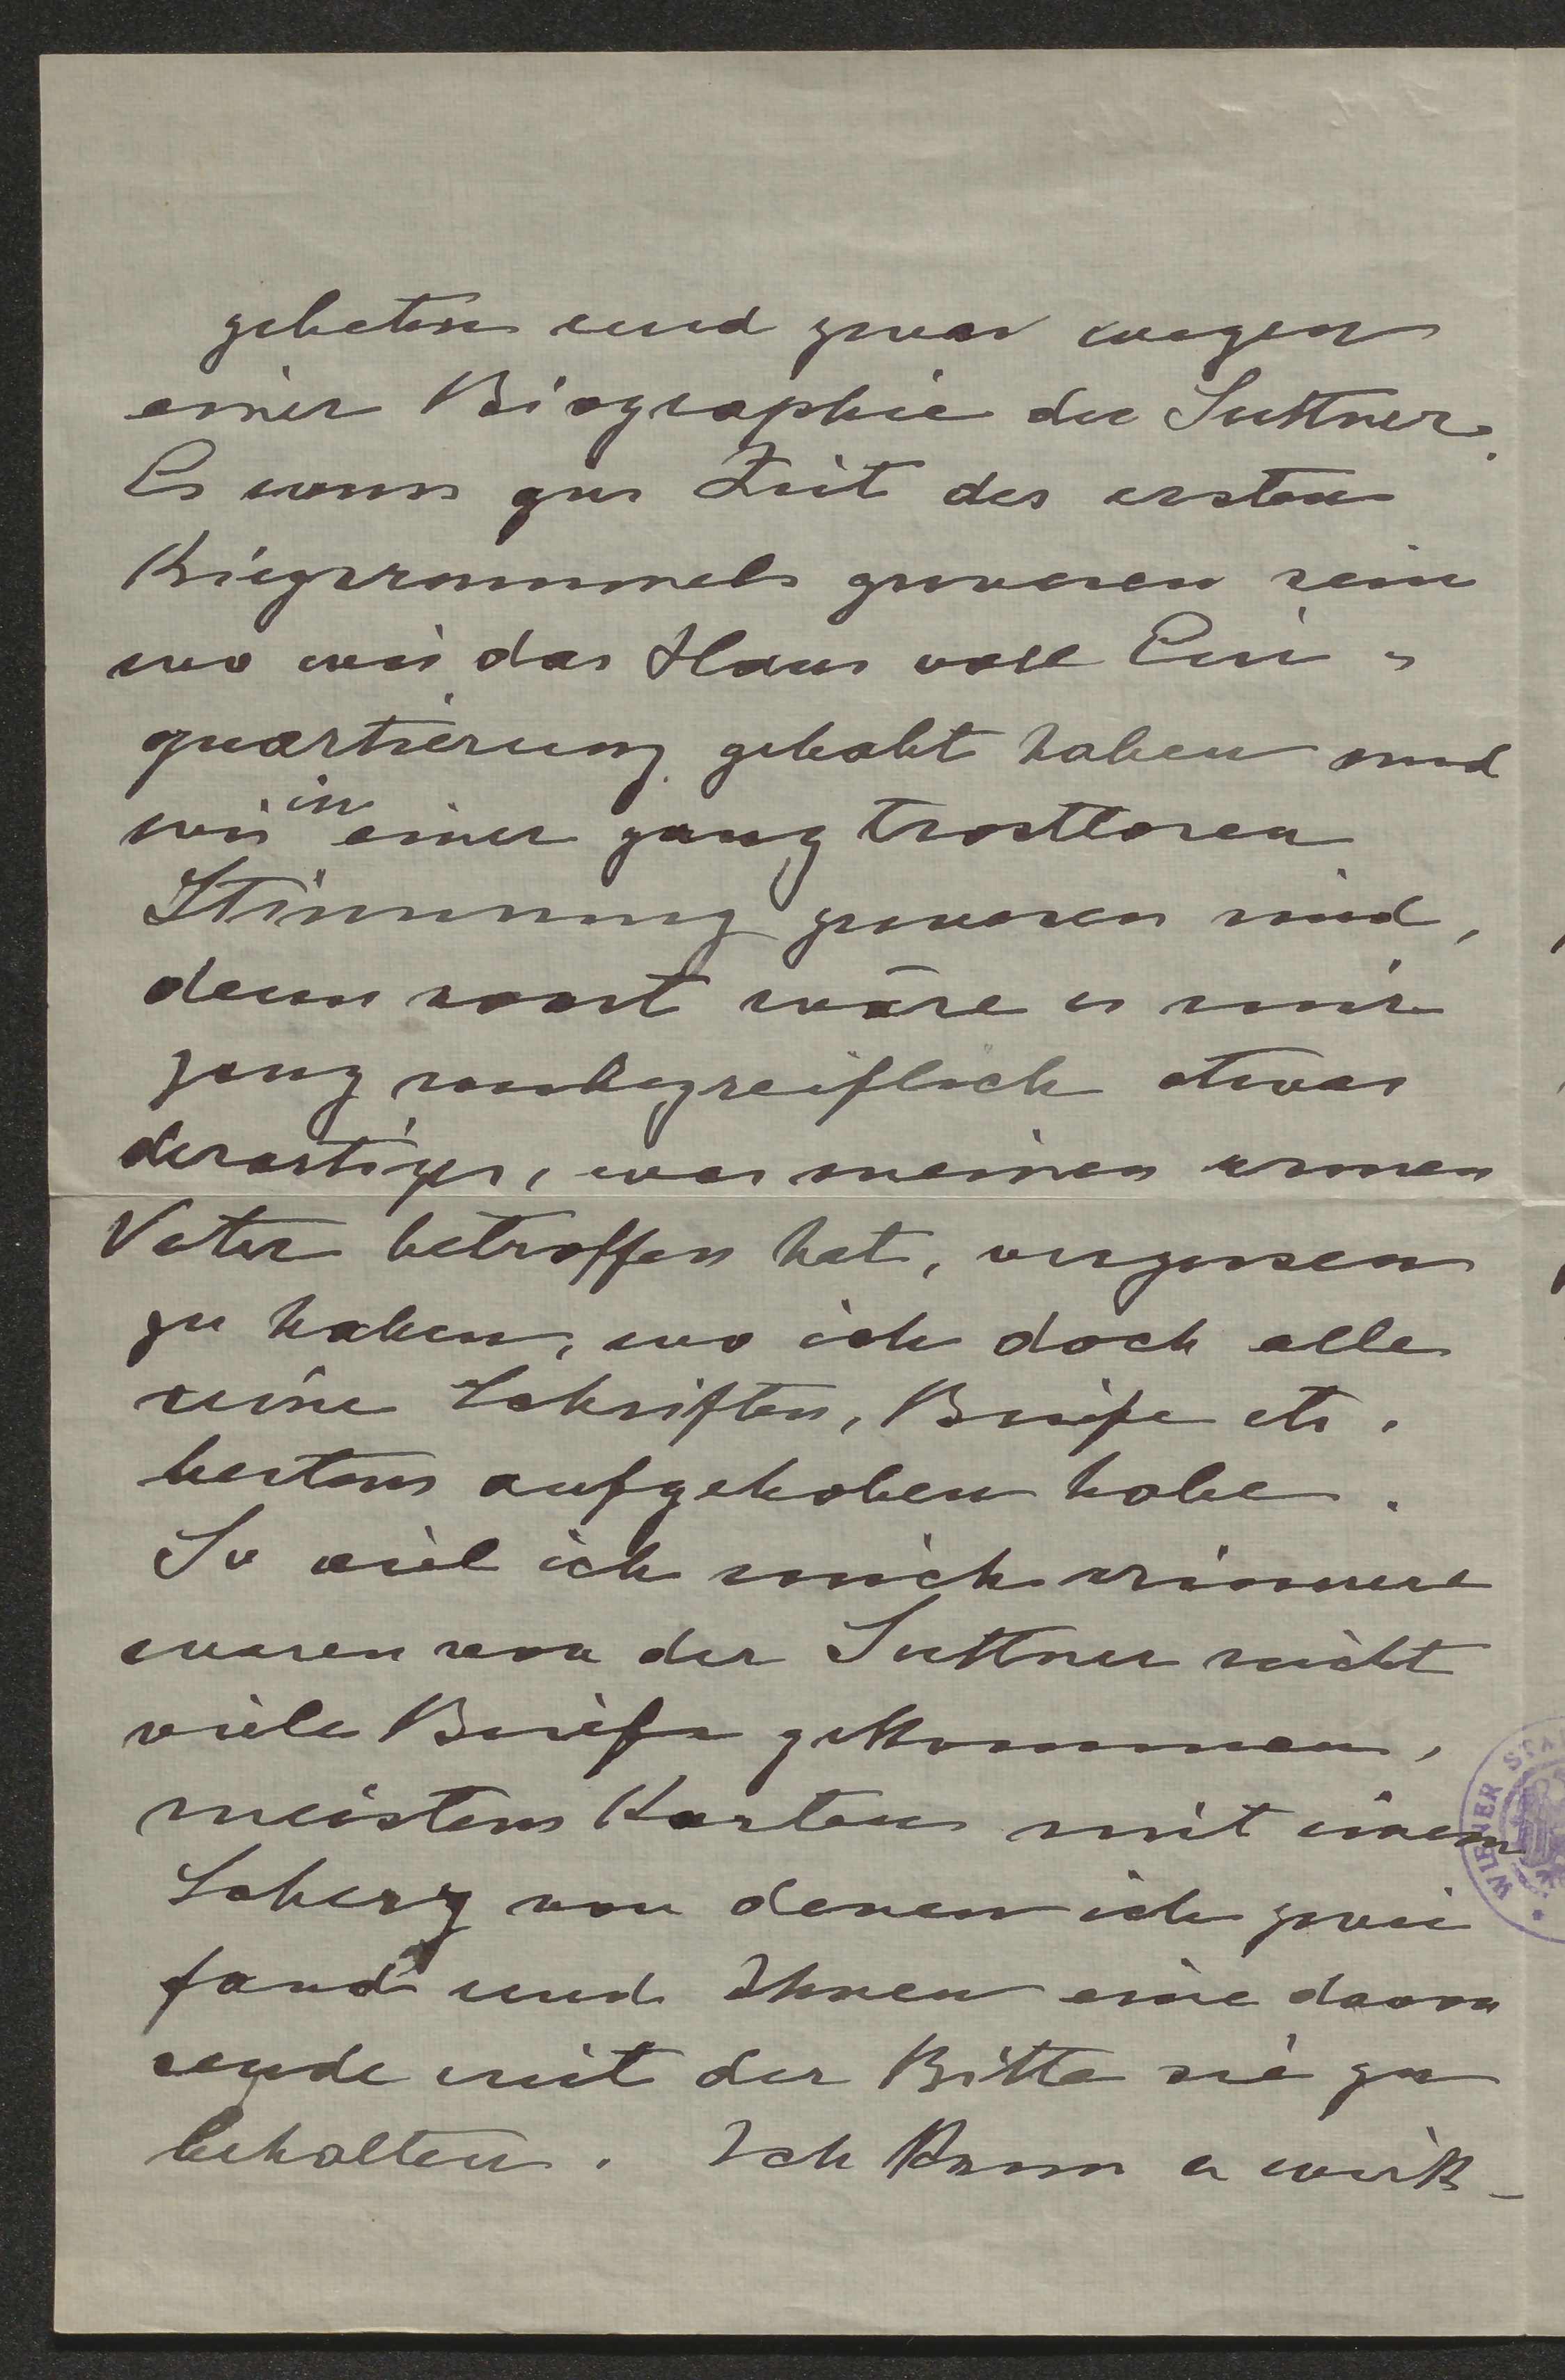 gebeten und zwar wegen
einer Biographie der Suttner.
Es muss zur Zeit des ersten
Kriegsrummels gewesen sein
wo wir das Haus voll Ein-
quartierung gehabt haben und
wir in einer ganz trostlosen
Stimmung gewesen sind,
denn sonst wäre es mir
ganz unbegreiflich etwas
derartiges, was meinen armen
Vater betroffen hat, vergessen
zu haben, wo ich doch alle
seine Schriften, Briefe etc.
bestens aufgehoben habe.
So viel ich mich erinnere
waren von der Suttner nicht
viele Briefe gekommen,
meistens Karten mit einem
Scherz von denen ich zwei
fand und Ihnen eine davon
sende mit der Bitte sie zu
behalten. Ich kann es wirk-
WIENER STA